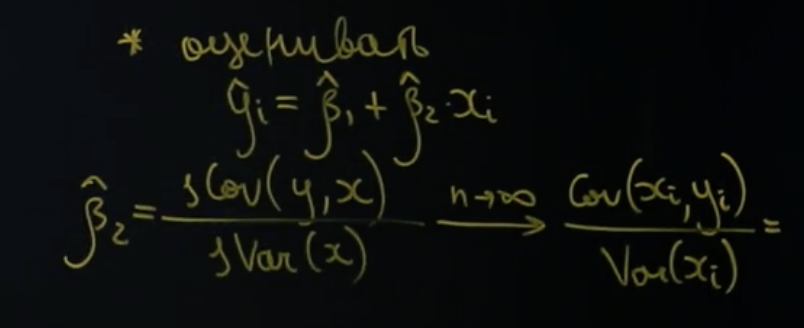 * оценивать
ŷᵢ = β̂₁ + β̂₂·xᵢ
β̂₂ = sCov(y,x) / sVar(x) n→∞ ⟶ Cov(xᵢ,yᵢ) / Var(xᵢ) =